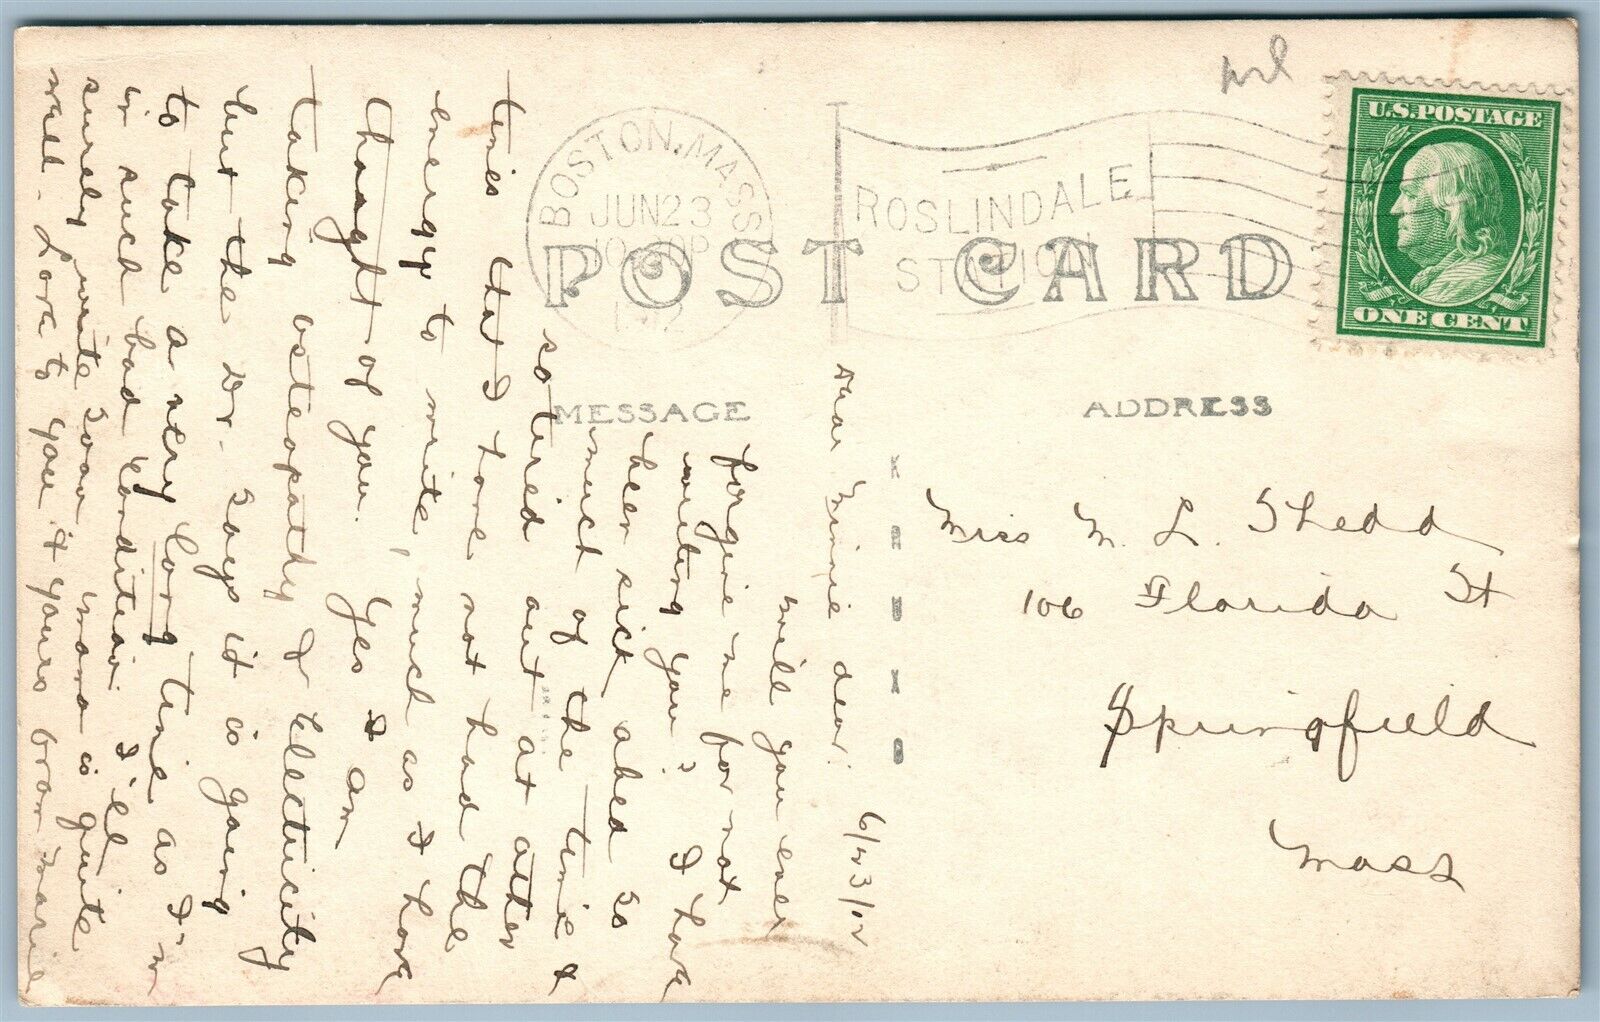 wd
U.S. POSTAGE
ONE CENT
BOSTON, MASS
JUN 23
1912
ROSLINDALE
STATION
POST CARD
MESSAGE
ADDRESS
Miss M. L. Shedd
106 Florida St
Springfield
Mass
6/23/12
Dear Minnie dear:
will you ever
forgive me for not
writing you? I have
been sick abed so
much of the time &
so tired out at other
times that I have not had the
energy to write, much as I have
thought of you. Yes I am
taking osteopathy & electricity
but the Dr. says it is going
to take a very long time as I'm
in such bad condition. I'll
surely write soon mama is quite
well. Love to you & yours from Marie